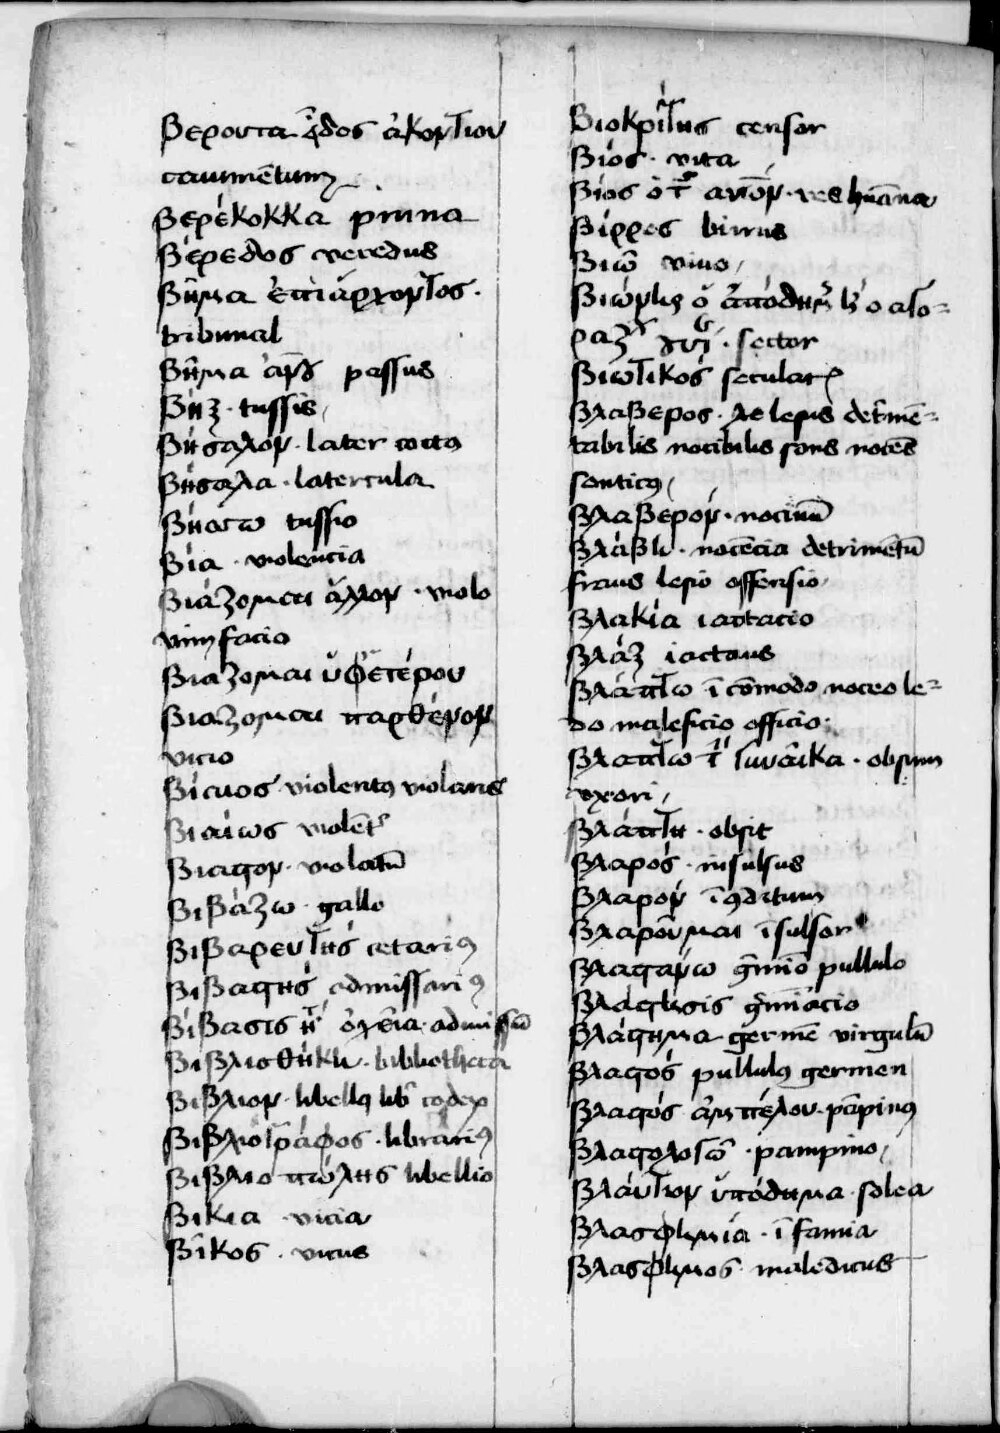 βερουτα εἶδος ἀκοντίου
βερέκοκκα pruna
βέρεδος veredus
βῆμα ἐπὶ ἄρχοντος ·
tribunal
βῆμα passus
βήξ · tussis
βήσαλον · later coctus
βήσαλα · latercula
βήσσω tussio
βία · violencia
βιάζομαι ἄλλον · violo
vim facio
βιαζομαι ὑφ ετέρου
βιαζομαι παρθένον
vicio
βίαιος violentus violans
βιαίως violenter
βιαστον · violatum
βιβάζω · gallo
βιβαρευτής cetarius
βιβαστής admissarius
βίβασις admissum
βιβλιοθήκη · bibliotheca
βιβλιον · libellus liber codex
βιβλιογράφος · librarius
βιβλιοπώλης libellio
βικια · vicia
βῖκος · vicus
βιοκρίτης censor
βίος · vita
βίος res humana
βίρρος birrus
βιῶ vivo
sector
βιωτικός secularis
βλαβερος · detrimen=
tabilis nocibilis sons nocens
sonticus
βλαβερόν · nocivum
βλάβη · nocencia detrimentum
fraus lesio offensio
βλακία iactacio
βλάξ iactans
βλάπτω incommodo noceo le=
do maleficio officio ·
βλαπτω τὴν γυναῖκα · obsum
uxori
βλάπτη · obsit
βλαρός · insulsus
βλαρον inconditum
βλαροῦμαι insulsor
βλασταίνω germino pullulo
βλάστησις germinacio
βλάστημα germen virgultum
βλαστός pullulus germen
βλαστός ἀμπέλου · pampinus
βλαστολογῶ · pampino
βλαύτιον ὑπόδημα · solea
βλασφημία · infamia
βλασφημος maledicus